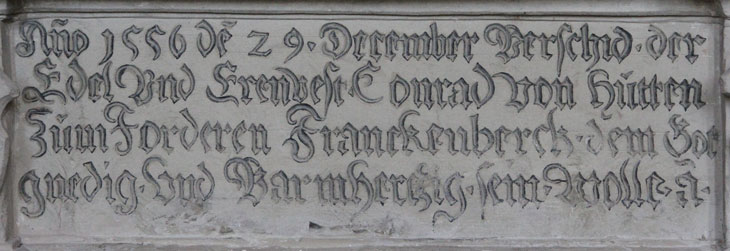 Año 1556 dē 29. December Verschid. der
Edel Vnd Erenvest. Conrad von Hutten
Zum Forderen Franckenberck. dem Got
gnedig. Vnd Barmhertzig. sein. wolle. ā.